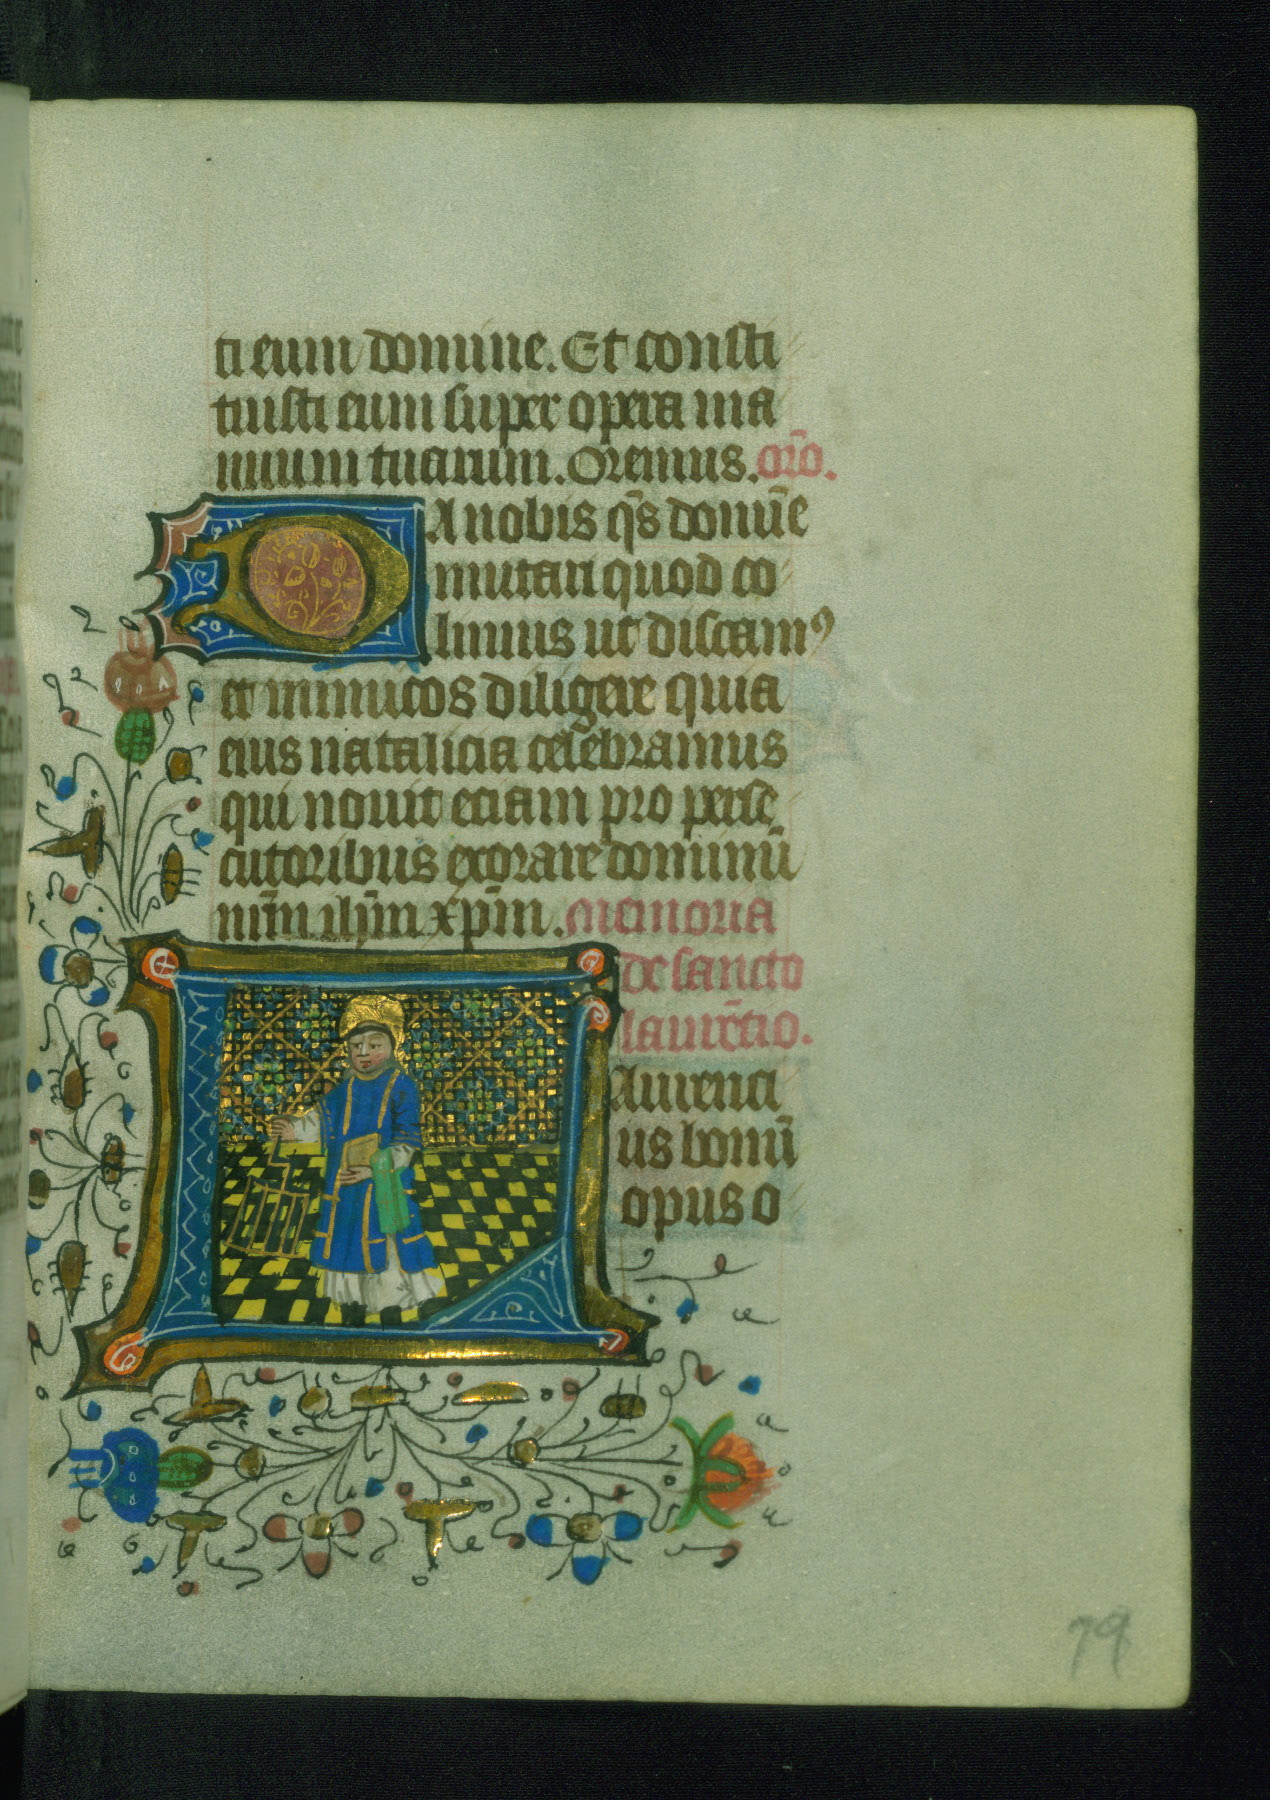 ti eum domine. Et consti
tuisti eum super opera ma
nuum tuarum. Oremus. orō.
DA nobis q̄s domīe
imitari quod co
limus ut discamꝰ
et inimicos diligere quia
eius natalicia celebramus
qui novit eciam pro perse
cutoribus exorare dominū
nr̄m ih̄m xp̄m. Memoria
de sancto
laurētio.
Laurenci
us bonū
opus o
79